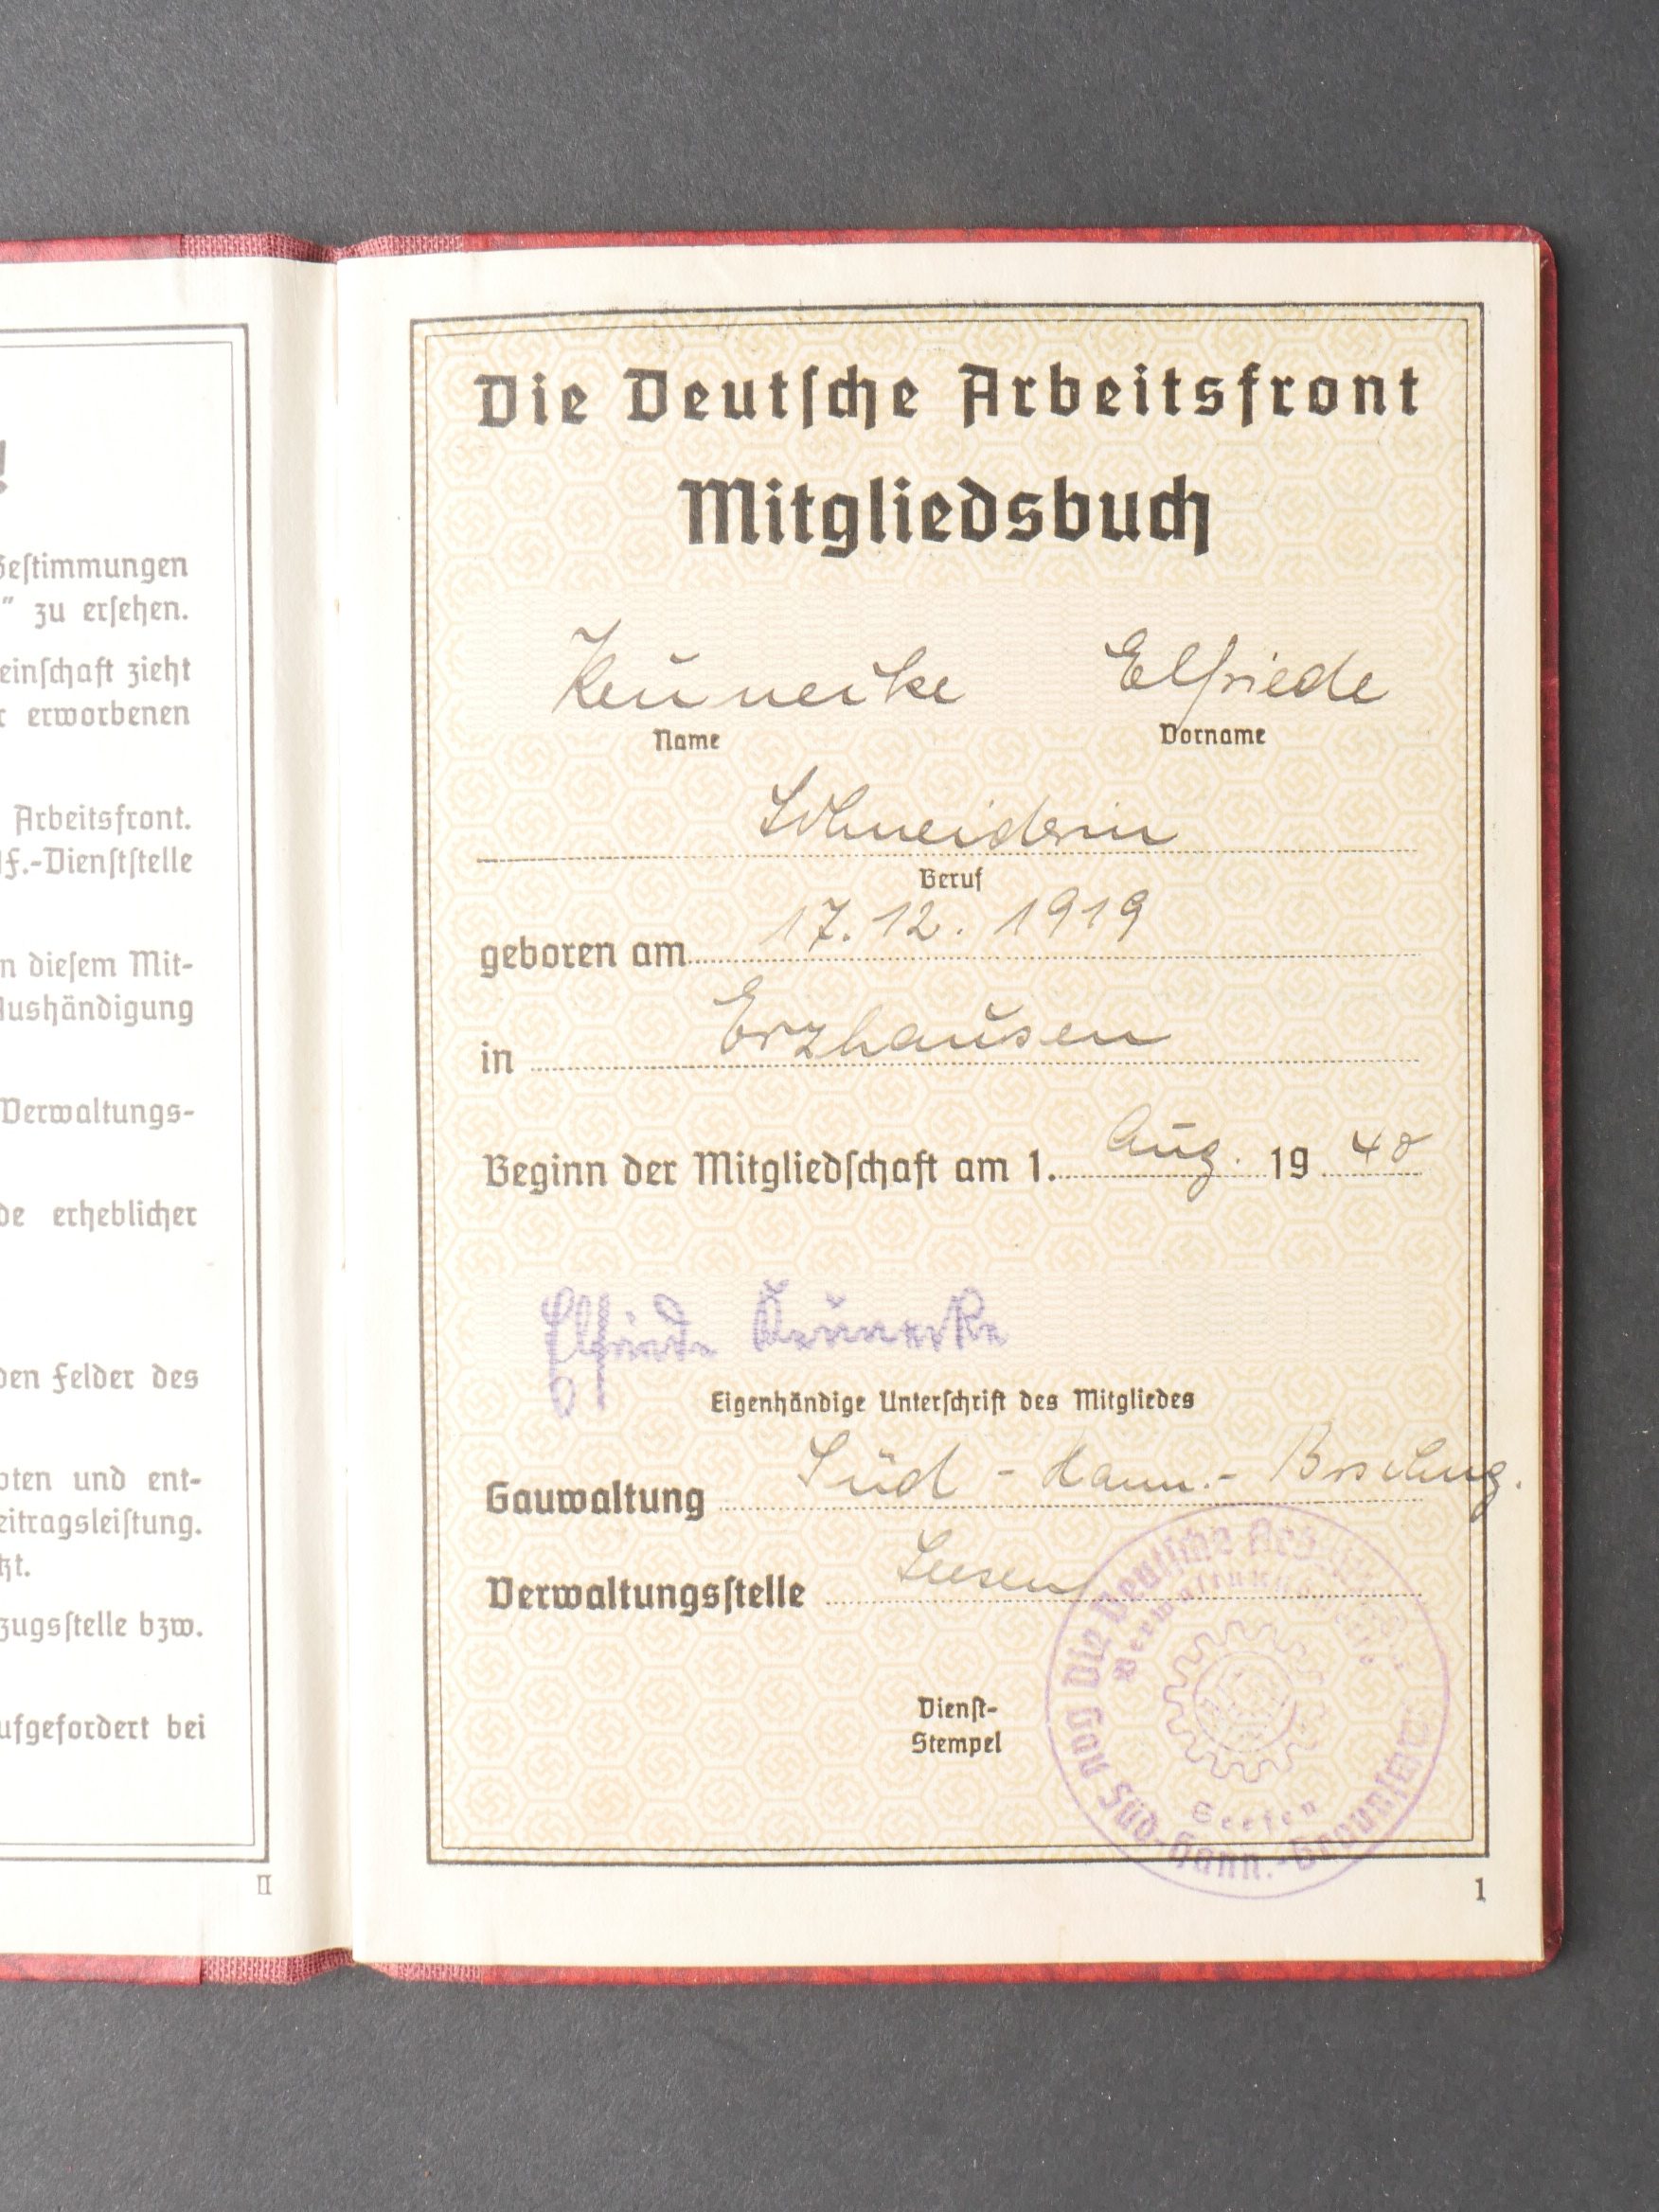 !
Bestimmungen
" zu ersehen.
einschaft zieht
r erworbenen
Arbeitsfront.
f.-Dienststelle
n diesem Mit-
Aushändigung
Verwaltungs-
de erheblicher
den Felder des
bten und ent-
eitragsleistung.
zt.
zugsstelle bzw.
ufgefordert bei
II
Die Deutsche Arbeitsfront
Mitgliedsbuch
Keunecke Elfriede
Name Vorname
Schneiderin
Beruf
geboren am 17.12.1919
in Erzhausen
Beginn der Mitgliedschaft am 1. Aug. 19 40
Elfriede Keunecke
Eigenhändige Unterschrift des Mitgliedes
Gauwaltung Süd-Hann.-Brschwg.
Verwaltungsstelle Seesen
Die Deutsche Arbeitsfront
Verwaltungsstelle
Dienst-
Stempel
Seesen
Gau Süd-Hann.-Braunschw.
1